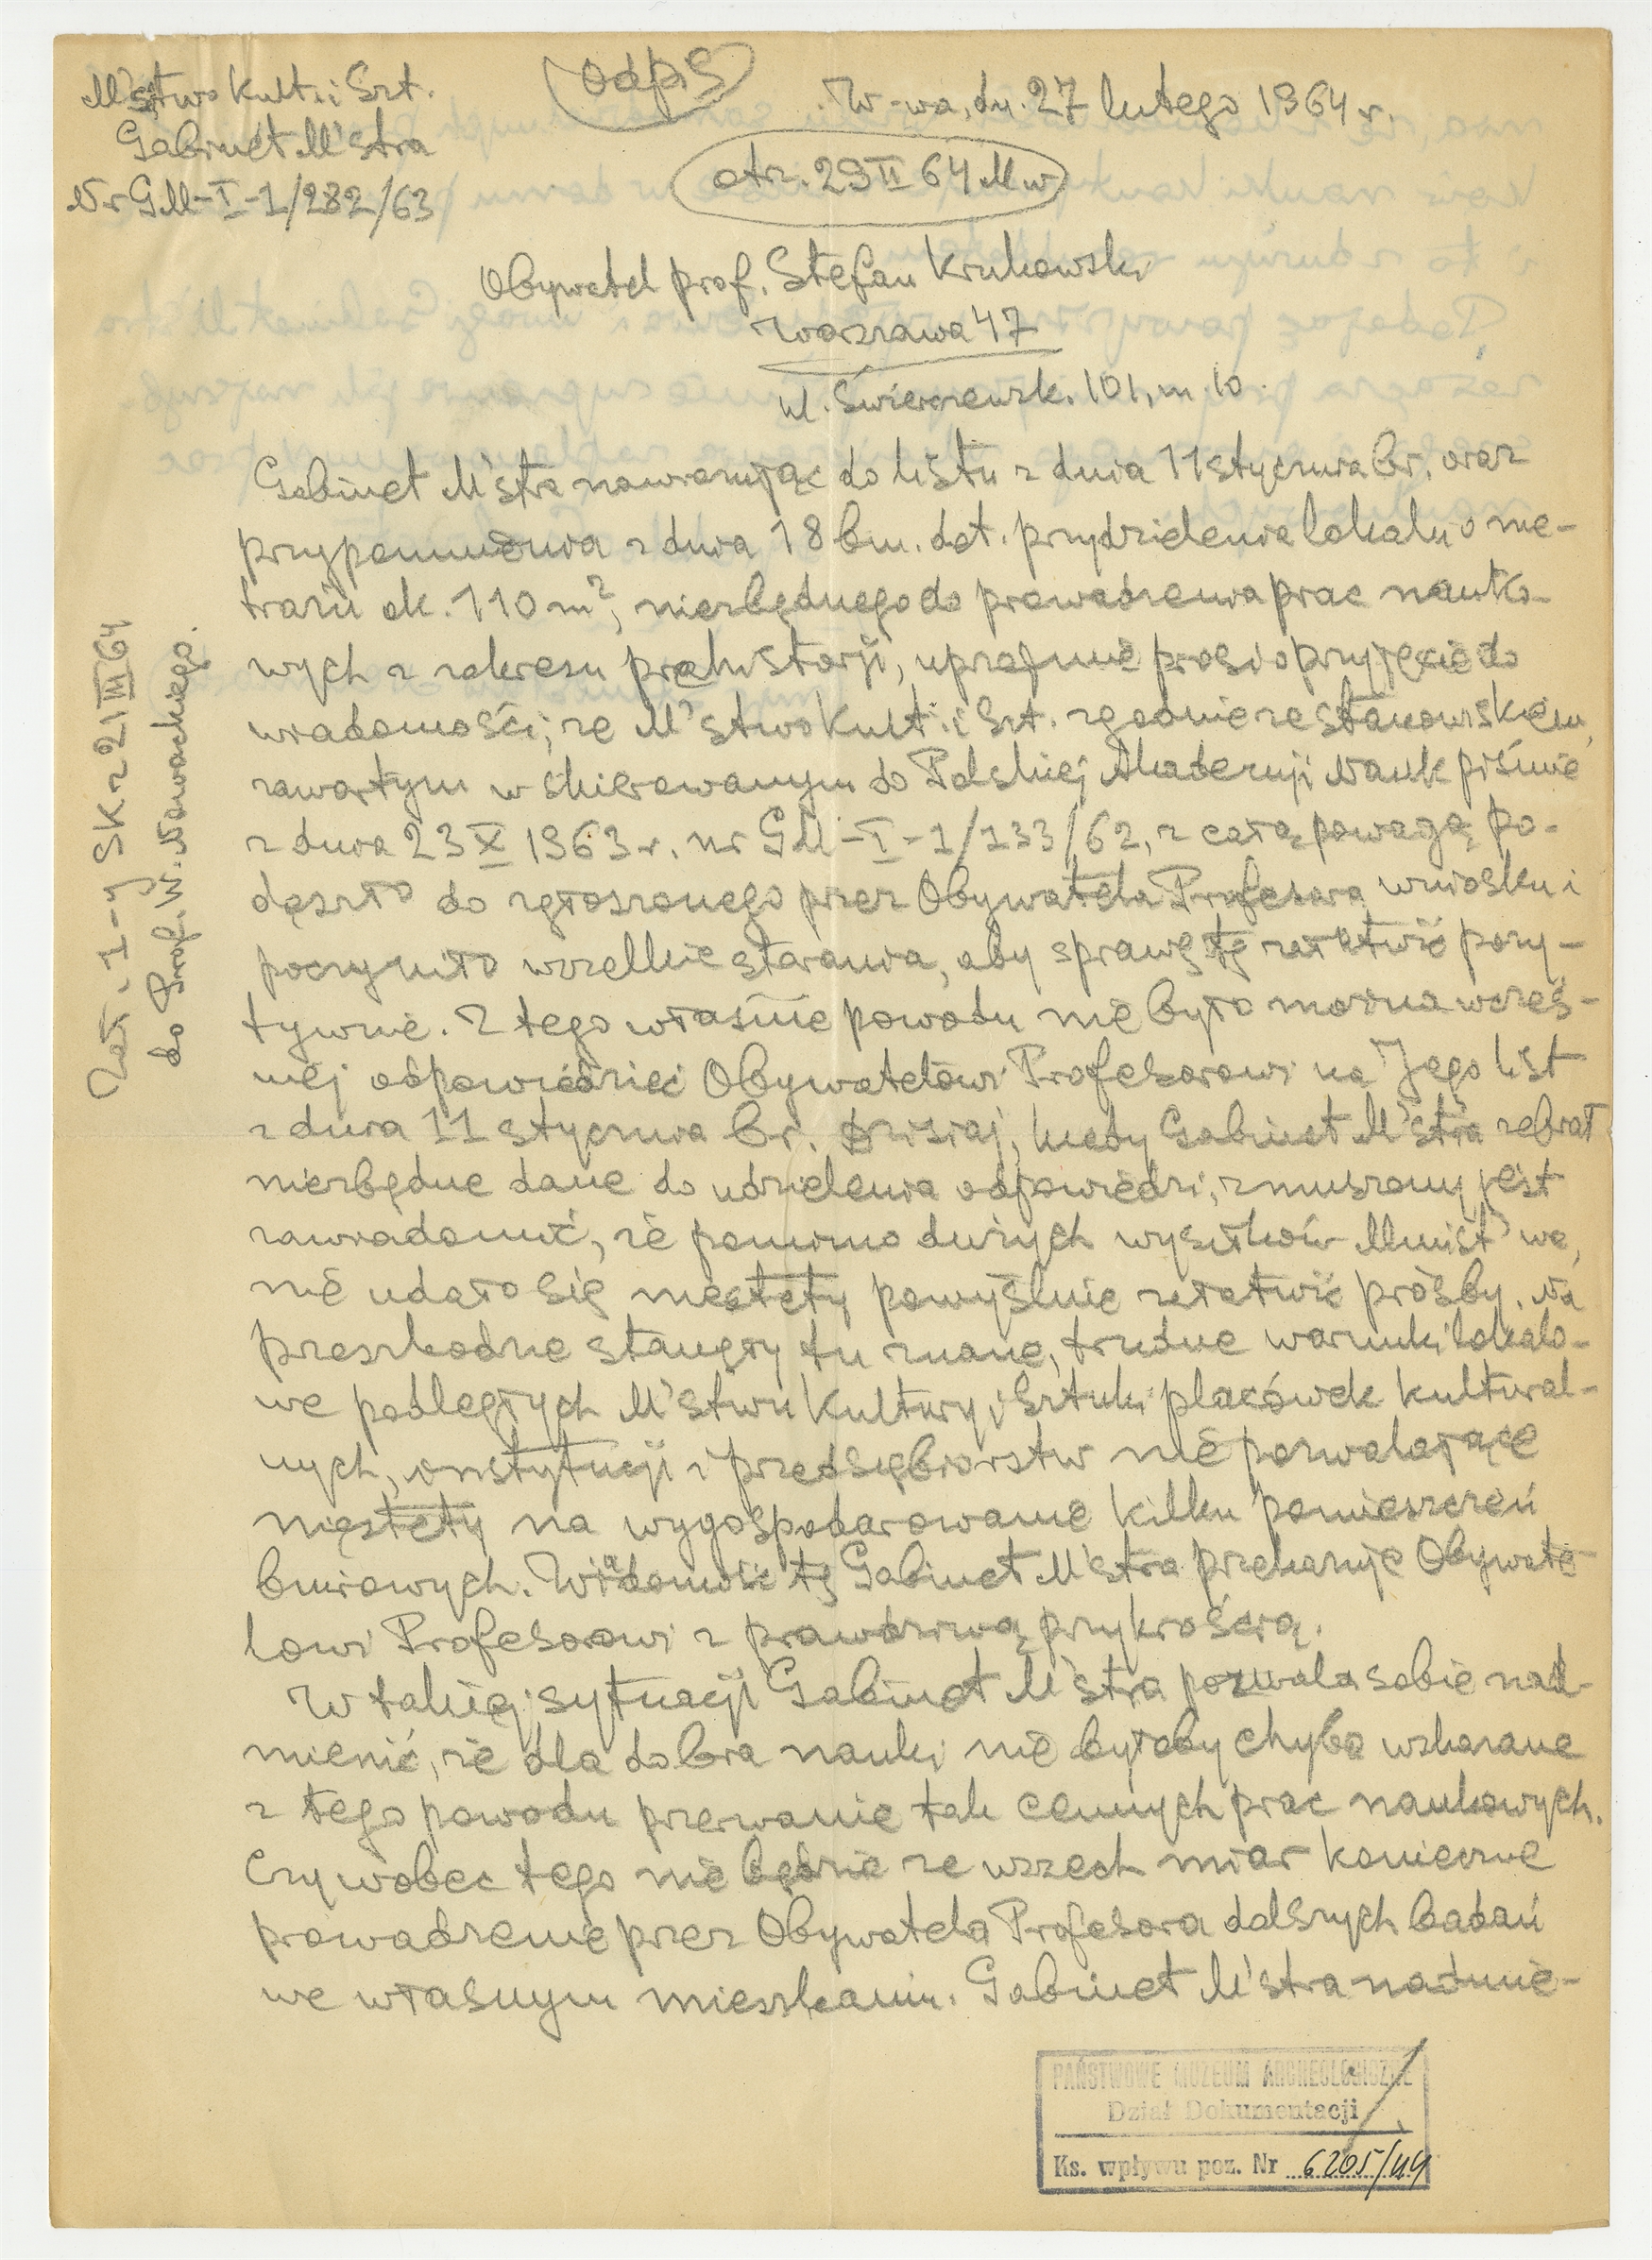 M'stwo Kult. i Szt.
Gabinet M'stra
Nr GM-I-1/282/63
Odpis
W-wa, dn. 27 lutego 1964 r.
otrz. 29 II 64 Mw
Obywatel prof. Stefan Krukowski
Warszawa 47
ul. Świerczewsk. 101, m 10.
Gabinet M'stra nawiązując do listu z dnia 11 stycznia br. oraz
przypomnienia z dnia 18 bm. dot. przydzielenia lokalu o me-
trażu ok. 110 m², niezbędnego do prowadzenia prac nauko-
wych z zakresu prahistorji, uprzejmie prosi o przyjęcie do
wiadomości, że M'stwo Kult. i Szt. zgodnie ze stanowiskiem,
zawartym w skierowanym do Polskiej Akademji Nauk piśmie
z dnia 23 X 1963 r. nr GM-I-1/133/62, z całą powagą po-
deszło do zgłoszonego przez Obywatela Profesora wniosku i
poczyniło wszelkie starania, aby sprawę tę załatwić pozy-
tywnie. Z tego właśnie powodu nie było można wcześ-
niej odpowiedzieć Obywatelowi Profesorowi na Jego list
z dnia 11 stycznia br. Dzisiaj, kiedy Gabinet M'stra zebrał
niezbędne dane do udzielenia odpowiedzi, zmuszony jest
zawiadomić, że pomimo dużych wysiłków Minist'wa,
nie udało się niestety pomyślnie załatwić prośby. Na
przeszkodzie stanęły tu znane, trudne warunki lokalo-
we podległych M'stwu Kultury i Sztuki placówek kultural-
nych, instytucji i przedsiębiorstw nie pozwalające
niestety na wygospodarowanie kilku pomieszczeń
biurowych. Wiadomość tę Gabinet M'stra przekazuje Obywate-
lowi Profesorowi z prawdziwą przykrością.
W takiej sytuacji Gabinet M'stra pozwala sobie nad-
mienić, że dla dobra nauki nie byłoby chyba wskazane
z tego powodu przerwanie tak cennych prac naukowych.
Czy wobec tego nie będzie ze wszech miar konieczne
prowadzenie przez Obywatela Profesora dalszych badań
we własnym mieszkaniu. Gabinet M'stra nadmie-
Zał. 1-y SK z 21 III 64
do Prof. W. Nowackiego.
PAŃSTWOWE MUZEUM ARCHEOLOGICZNE
Dział Dokumentacji
Ks. wpływu poz. Nr 6205/44